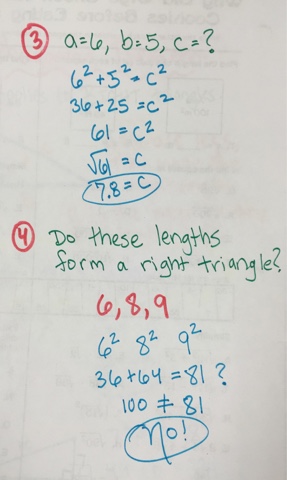 ③ a=6, b=5, c=?
6²+5²=c²
36+25=c²
61=c²
√61=c
7.8=c
④ Do these lengths
form a right triangle?
6,8,9
6² 8² 9²
36+64=81?
100≠81
No!